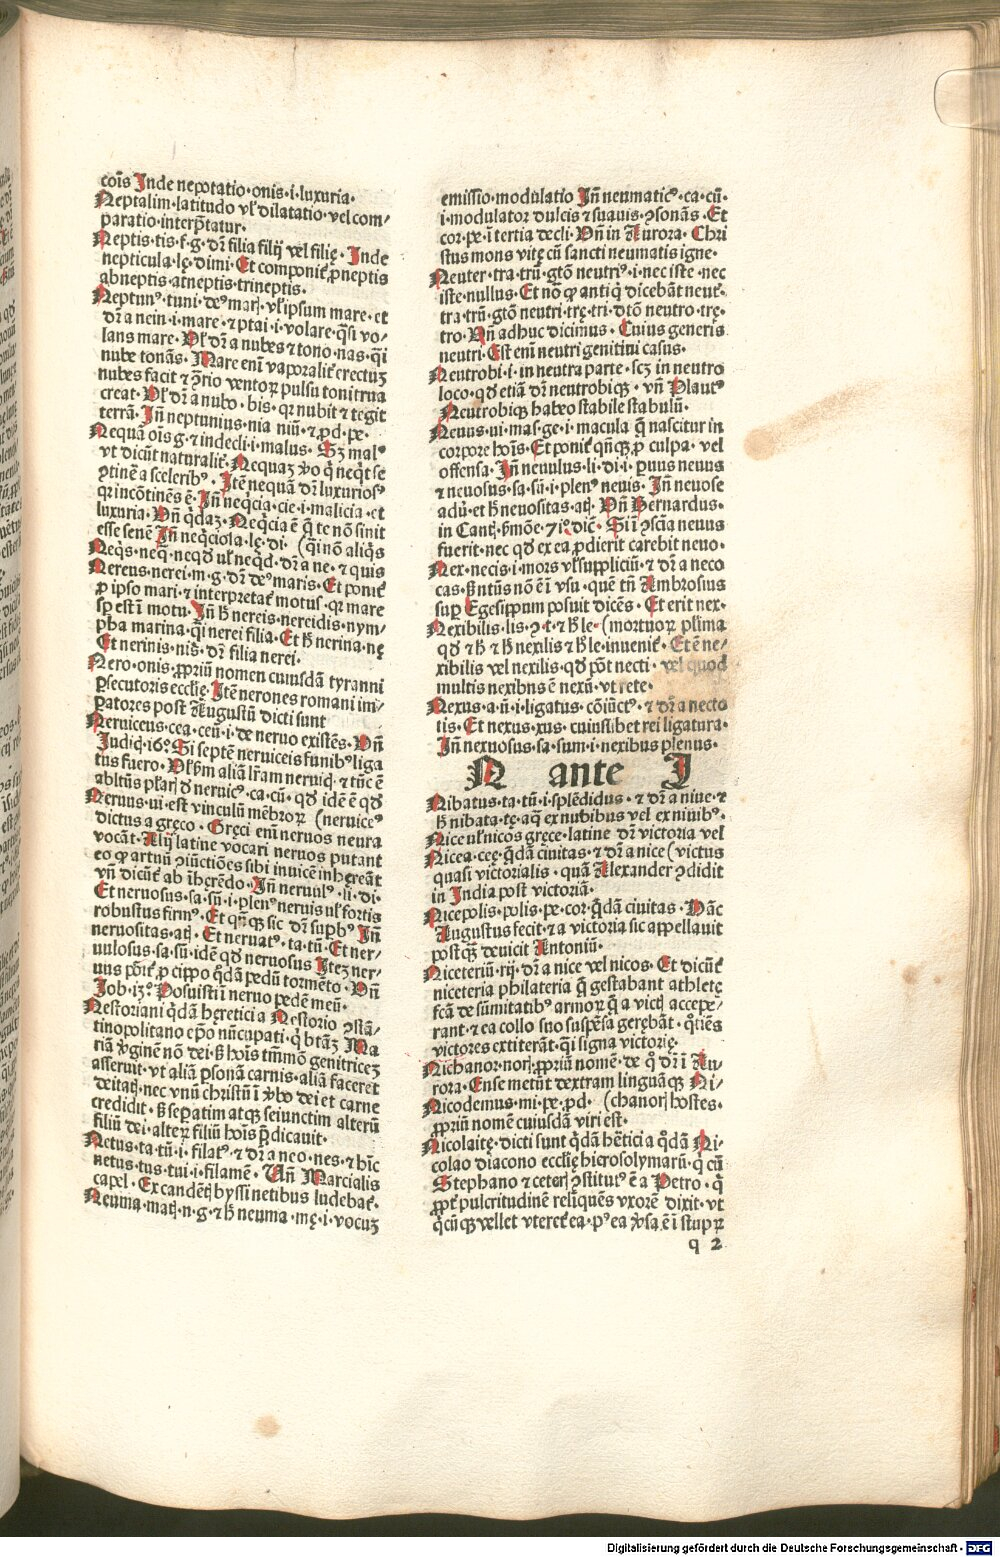 coīs Inde nepotatio·onis·i·luxuria·
Neptalim·latitudo vl̓ dilatatio·vel com/
paratio·interp̄tatur·
Neptis·tis·f·g·dr̄ filia filij vel filię·Inde
nepticula·lę·dimi·Et componit̄ ꝓneptis
abneptis·atneptis·trineptis·
Neptunꝰ·tuni·deꝰ marꝭ·vl̓ ipsum mare·et
dr̄ a nein·i·mare·⁊ ptai·i·volare·q̄si vo/
lans mare·Vl̓ dr̄ a nubes ⁊ tono·nas·q̄i
nube tonās·Mare enī vaporalit̄ erectuz
nubes facit ⁊ ꝯrio ventoꝝ pulsu tonitrua
creat·Vl̓ dr̄ a nubo·bis·qꝛ nubit ⁊ tegit
terrā·Jn̄ neptunius·nia niū·⁊ ꝓd·pe·
Nequā oīs g·⁊ indecli·i·malus·Sꝫ malꝰ
vt dicūt naturalit̄·Nequaꝫ ꝟo q̇ neq̇t se
ꝯtinē a sceleribꝰ·Itē nequā dr̄ luxuriosꝰ
qꝛ incōtinēs ē·Jn̄ neq̇cia·cie·i·malicia·et
luxuria·Vn̄ q̇daꝫ·Neq̇cia ē q̄ te nō sinit
esse senē Jn̄ neq̇ciola·lę·di· (q̄i nō aliq̇s
Neq̇s·neq̄·neqd̄ vl̓ neq̇d·dr̄ a ne·⁊ quis
Nereus·nerei·m·g·dr̄ deꝰ maris·Et ponit̄
ꝓ ipso mari·⁊ interpretat̄ motus·qꝛ mare
sp̄ est ī motu·Jn̄ h̄ nereis·nereidis·nym/
pha marina·q̄i nerei filia·Et h̄ nerina·nę
Et nerinis·nis·dr̄ filia nerei·
Nero·onis·ꝓpriū nomen cuiusdā tyranni
ꝑsecutoris ecclię·Itē nerones romani im/
ꝑatores post Augustū dicti sunt
Neruiceus·cea·ceū·i·de neruo existēs·Vn̄
Judiq̇·16º·Si septē neruiceis funibꝰ liga
tus fuero·Vl̓ ꝑm aliā lr̄am neruiq̇·⁊ tūc ē
ablt̄us pl̓arꝭ ꝺ neruicꝰ·ca·cū·qd̄ idē ē qd̄
Neruus·ui·est vinculū mēbroꝝ (neruiceꝰ
dictus a gręco·Gręci enī neruos neura
vocāt·Alij latine vocari neruos putant
eo ꝙ artuū ꝯiūctiōes sibi inuicē inhęreāt
vn̄ dicūt̄ ab īhęrēdo·Jn̄ neruulꝰ·li·di·
Et neruosus·sa·sū·i·plenꝰ neruis vl̓ fortis
robustus firmꝰ·Et qn̄qꝫ sic dr̄ supbꝰ Jn̄
neruositas·atꝭ·Et neruatꝰ·ta·tū·Et ner/
uulosus·sa·sū·idē qd̄ neruosus Iteꝫ ner/
uus pōit̄·ꝓ cippo q̇dā pedū tormēto·Vn̄
Job·13º·Posuisti ī neruo pedē meū·
Nestoriani q̇dā hęretici a Nestorio ꝯstā/
tinopolitano epo nūcupati·q̇ btāꝫ Ma
riā ꝟginē nō dei·ß hoīs tm̄mō genitriceꝫ
asseruit·vt aliā ꝑsonā carnis·aliā faceret
deitatꝭ·nec vnū christū ī ꝟbo dei et carne
credidit·ß sepatim atqꝫ seiunctim alterū
filiū dei·alteꝝ filiū hoīs p̄dicauit·
Netus·ta·tū·i·filatꝰ·⁊ dr̄ a neo·nes·⁊ hīc
netus·tus·tui·i·filamē·Vn̄ Marcialis
capel·Ex candētꝭ byssi netibus ludebat̄·
Neuma·matꝭ·n·g·⁊ h̄ neuma·mę·i·vocuꝫ
emissio·modulatio Jn̄ neumaticꝰ·ca·cū·
i·modulator dulcis ⁊ suauis·ꝯsonās·Et
cor·pe·i tertia decli·Vn̄ in Aurora·Chri
stus mons vitę cū sancti neumatis igne·
Neuter·tra·trū·gtō neutriꝰ·i·nec iste·nec
iste·nullus·Et nō ꝙ antiq̇ dicebāt neut̄·
tra·trū·gtō neutri·trę·tri·dtō neutro·trę·
tro·Vn̄ adhuc dicimus·Cuius generis
neutri·Est enī neutri genitiui casus·
Neutrobi·i·in neutra parte·scꝫ in neutro
loco·qd̄ etiā dr̄ neutrobiqꝫ·vn̄ Plautꝰ
Neutrobiqꝫ habeo stabile stabulū·
Neuus·ui·mas·ge·i·macula q̄ nascitur in
corpore hoīs·Et ponit̄ qn̄qꝫ ꝓ culpa·vel
offensa·Jn̄ neuulus·li·di·i·ꝑuus neuus
⁊ neuosus·sa·sū·i·plenꝰ neuis·Jn̄ neuose
adū·et h̄ neuositas·atꝭ·Vn̄ Bernardus·
in Cantꝭ·ßmōe·71º·dic̄·Si ī ꝯsciā neuus
fuerit·nec qd̄ ex ea ꝓdierit carebit neuo·
Nex·necis·i·mors vl̓ suppliciū·⁊ dr̄ a neco
cas·ß nt̄us nō ē ī vsu·quē tn̄ Ambrosius
sup Egesippum posuit dicēs·Et erit nex·
Nexibilis·lis·ꝯ·t·⁊ h̄ le· (mortuoꝝ plīma
qd̄ ⁊ h̄ ⁊ h̄ nexilis ⁊ h̄ le·inuenit̄·Et ē ne/
xibilis vel nexilis·qd̄ pōt necti·vel quod
multis nexibus ē nexū·vt rete·
Nexus·a·ū·i·ligatus·cōiūctꝰ·⁊ dr̄ a necto
tis·Et nexus·xus·cuiuslibet rei ligatura·
Jn̄ nexuosus·sa·sum·i·nexibus plenus·
N ante I
Nibatus·ta·tū·i·splēdidus·⁊ dr̄ a niue·⁊
h̄ nibata·tę·aq̄ ex nubibus vel ex niuibꝰ·
Nice vl̓ nicos gręce·latine dr̄ victoria vel
Nicea·ceę·q̄dā ciuitas·⁊ dr̄ a nice (victus
quasi victorialis·quā Alexander ꝯdidit
in India post victoriā·
Nicepolis·polis·pe·cor·q̄dā ciuitas·Hāc
Augustus fecit·⁊ a victoria sic appellauit
postqꝫ deuicit Antoniū·
Niceteriū·rij·dr̄ a nice vel nicos·Et dicūt̄
niceteria philateria q̄ gestabant athletę
fcā de sūmitatibꝰ armoꝝ q̄ a victꝭ accepe/
rant·⁊ ea collo suo suspēsa gerębāt·q̇tiēs
victores extiterāt·q̄i signa victorię·
Nichanor·norꝭ·ꝓpriū nomē·de q̇ dr̄ ī Au/
rora·Ense metūt dextram linguāqꝫ Ni/
Nicodemus·mi·pe·ꝓd· (chanorꝭ hostes·
ꝓpriū nomē cuiusdā viri est·
Nicolaitę·dicti sunt q̇dā hētici a q̇dā Ni·
colao diacono ecclię hierosolymarū·q̇ cū
Stephano ⁊ ceterꝭ ꝯstitutꝰ ē a Petro·q̇
ꝓpt̄ pulcritudinē reliquēs vxorē dixit·vt
q̇cūqꝫ vellet vteret̄ ea·pꝰ ea ꝟsa ē ī stupꝝ
q 2
Digitalisierung gefördert durch die Deutsche Forschungsgemeinschaft - DFG